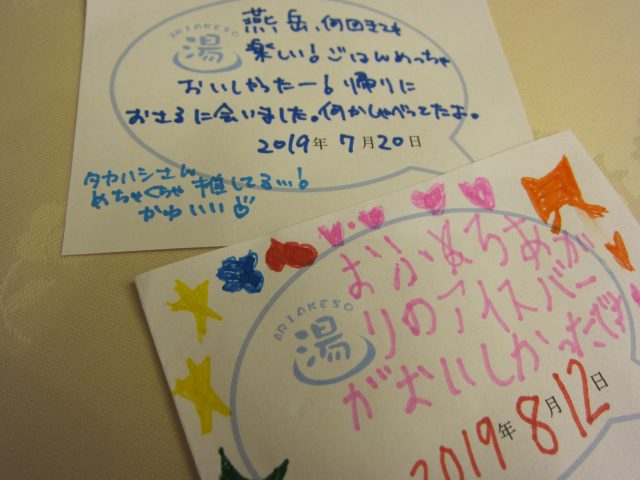 ARIAKESO
湯
燕岳、何回きても
楽しい！ごはんめっちゃ
おいしかったー！帰りに
おさるに会いました。何かしゃべってたよ。
2019年7月20日
タカハシさん
めちゃくちゃ推してる…！
かわいい
ARIAKESO
湯
おふろあが
りのアイスバー
がおいしかったです
2019年8月12日